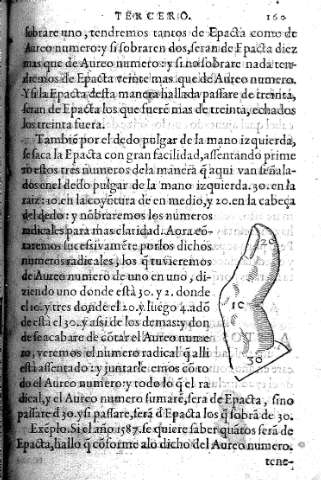 TERCERO. 160
sobrare uno, tendremos tantos de Epacta como de
Aureo numero: y si sobraren dos, seran de Epacta diez
mas que de Aureo numero: y si no sobrare nada ten-
dremos de Epacta veinte mas que de Aureo numero.
Y si la Epacta desta manera hallada passare de treinta,
seran de Epacta los que fuerẽ mas de treinta, echados
los treinta fuera.
Tambiẽ por el dedo pulgar de la mano izquierda,
se saca la Epacta con gran facilidad, assentando prime
ro estos tres numeros de la manera q̃ aqui van señala-
dos en el dedo pulgar de la mano izquierda. 30. en la
raiz: 10. en la coyũtura de en medio, y 20. en la cabeça
del dedo: y nõbraremos los numeros
radicales para mas claridad. Aora cõ-
taremos successivamẽte por los dichos
numeros radicales, los q̃ tuvieremos
de Aureo numero de uno en uno, di-
ziendo uno donde està 30. y 2. donde
el 10. y tres donde el 20. y luego 4. adõ
de està el 30. y assi de los demas: y don
de se acabare de cõtar el Aureo nume
ro, veremos el numero radical q̃ alli
està assentado: y juntarle emos cõ to
do el Aureo numero: y todo lo q̃ el ra
dical, y el Aureo numero sumarẽ, sera de Epacta, sino
passare đ 30. y si passare, serà đ Epacta los q̃ sobrã de 30.
Exẽplo. Si el año 1587. se quiere saber quãtos serã de
Epacta, hallo q̃ cõforme a lo dicho del Aureo numero.
tene-
20
10
30